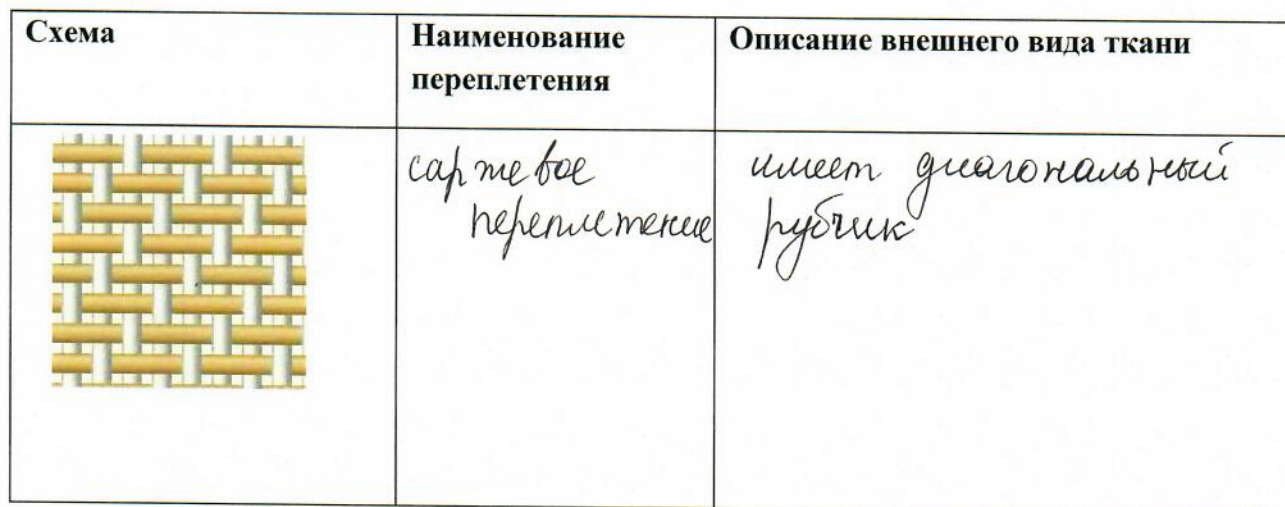 Схема
Наименование
переплетения
Описание внешнего вида ткани
саржевое
переплетение
имеет диагональный
рубчик